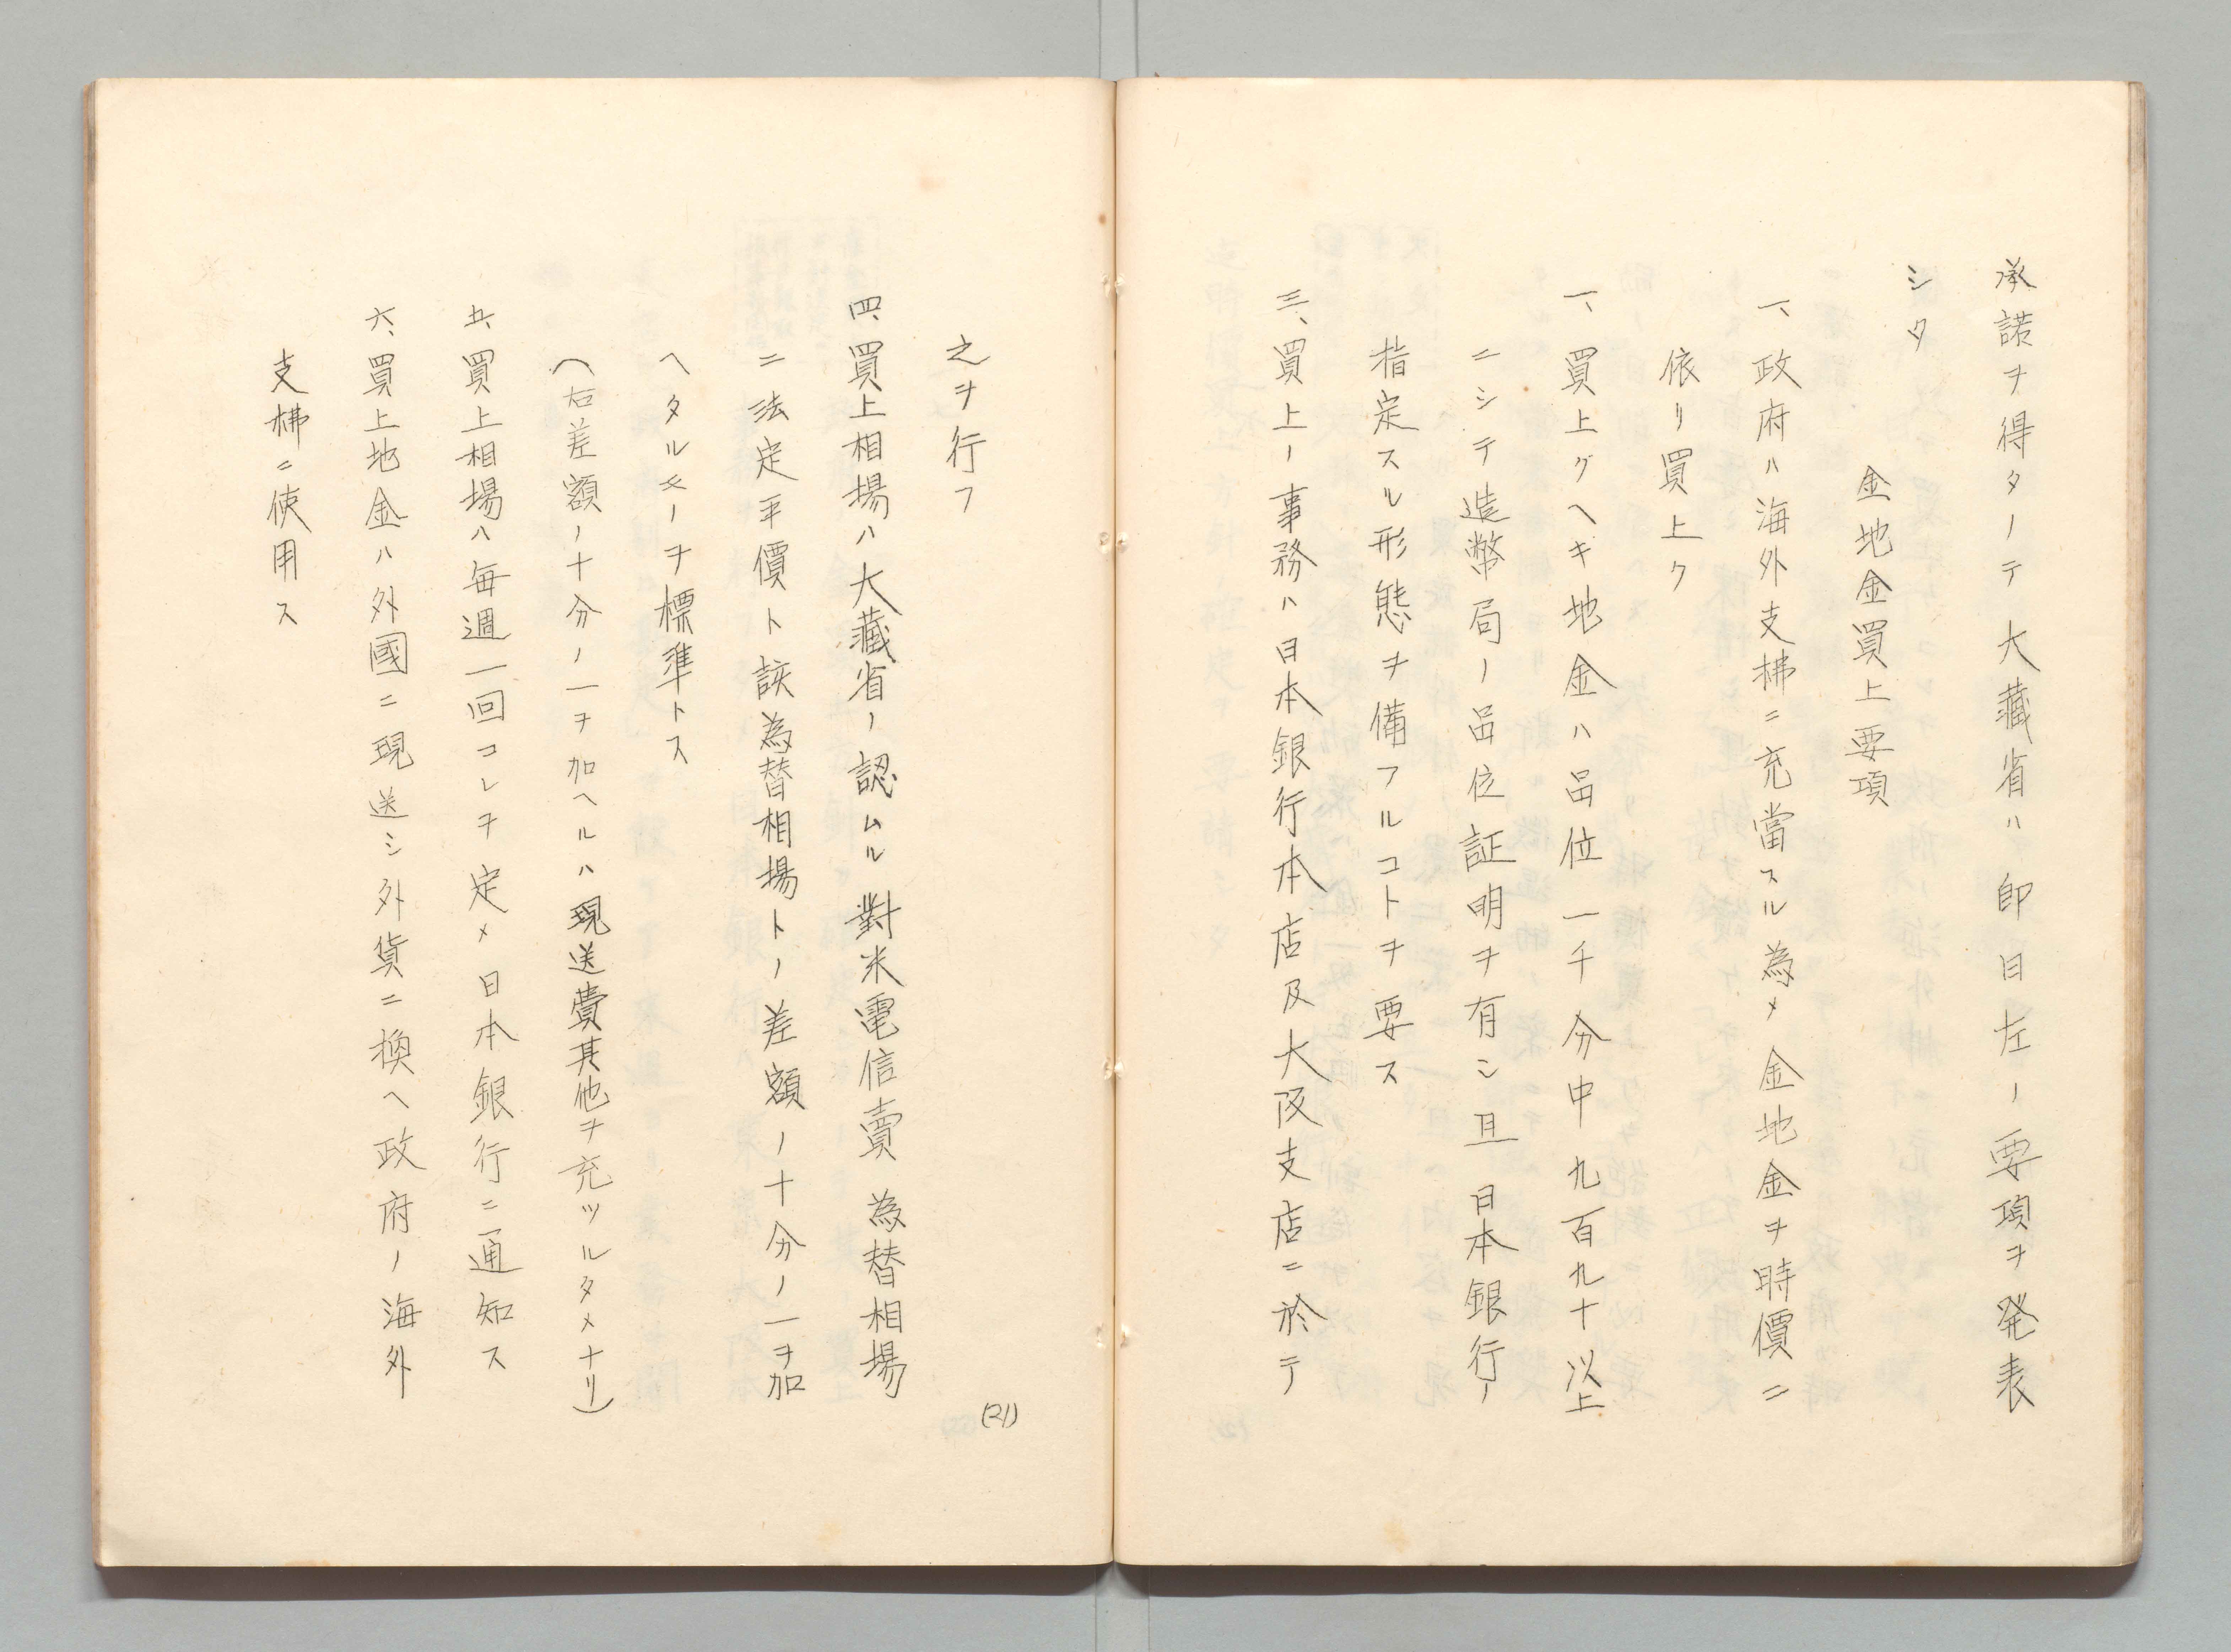 承諾ヲ得タノテ大藏省ハ即日左ノ要項ヲ発表
シタ
金地金買上要項
一、政府ハ海外支拂ニ充當スル為メ金地金ヲ時價ニ
依リ買上ク
一、買上グヘキ地金ハ品位一千分中九百九十以上
ニシテ造幣局ノ品位証明ヲ有シ且日本銀行ノ
指定スル形態ヲ備フルコトヲ要ス
三、買上ノ事務ハ日本銀行本店及大阪支店ニ於テ
之ヲ行フ
四、買上相場ハ大藏省ノ認ムル對米電信賣為替相場
ニ法定平價ト該為替相場トノ差額ノ十分ノ一ヲ加
ヘタルモノヲ標準トス
(右差額ノ十分ノ一ヲ加ヘルハ現送費其他ヲ充ツルタメナリ)
五、買上相場ハ毎週一回コレヲ定メ日本銀行ニ通知ス
六、買上地金ハ外國ニ現送シ外貨ニ換ヘ政府ノ海外
支拂ニ使用ス
(21)